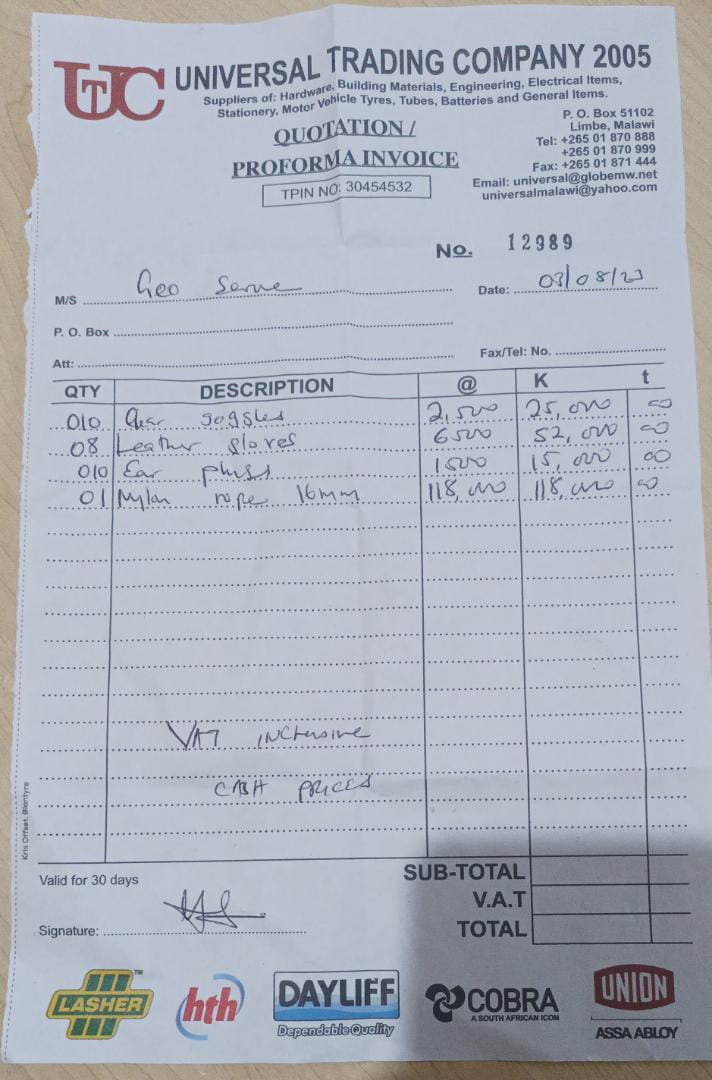 UTC UNIVERSAL TRADING COMPANY 2005
Suppliers of: Hardware, Building Materials, Engineering, Electrical Items,
Stationery, Motor Vehicle Tyres, Tubes, Batteries and General Items.
QUOTATION /
PROFORMA INVOICE
TPIN NO: 30454532
P. O. Box 51102
Limbe, Malawi
Tel: +265 01 870 888
+265 01 870 999
Fax: +265 01 871 444
Email: universal@globemw.net
universalmalawi@yahoo.com
No. 12989
M/S Geo Serve
Date: 03/08/23
P. O. Box
Att:
Fax/Tel: No.
QTY DESCRIPTION @ K t
010 Clear goggles 2,500 25,000 00
08 Leather gloves 6500 52,000 00
010 Ear plugs 1500 15,000 00
01 Nylon rope 16mm 118,000 118,000 00
VAT inclusive
CASH PRICES
Kris Offset, Blantyre
Valid for 30 days
SUB-TOTAL
V.A.T
TOTAL
Signature:
LASHER™
hth
DAYLIFF
Dependable Quality
COBRA
A SOUTH AFRICAN ICON
UNION
ASSA ABLOY